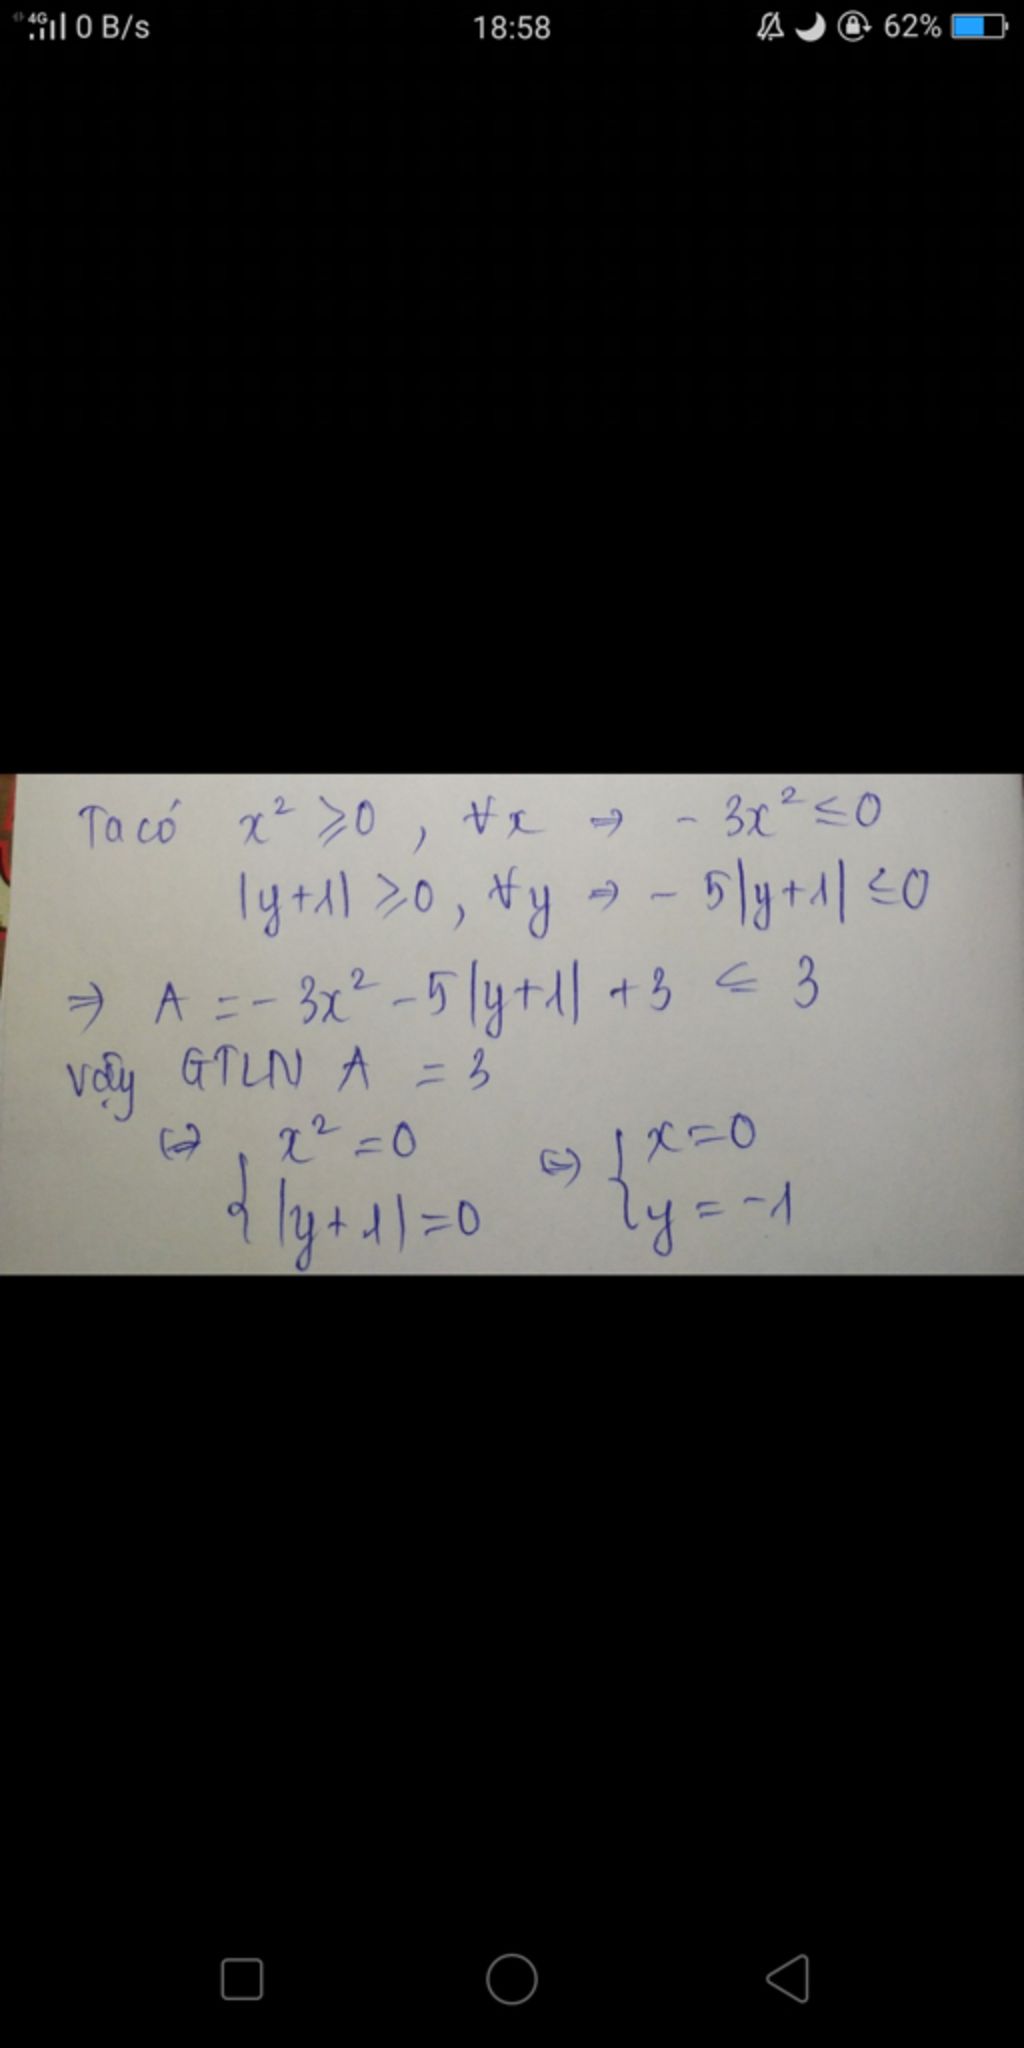 4G 0 B/s 18:58 62%
Ta có x² ⩾0 , ∀x ⇒ - 3x² ≤0
|y+1| ⩾0, ∀y ⇒ - 5|y+1| ≤0
⇒ A = - 3x² - 5|y+1| + 3 ≤ 3
Vậy GTLN A = 3
⇔ { x² = 0 ⇔ { x = 0
|y+1| = 0 y = -1